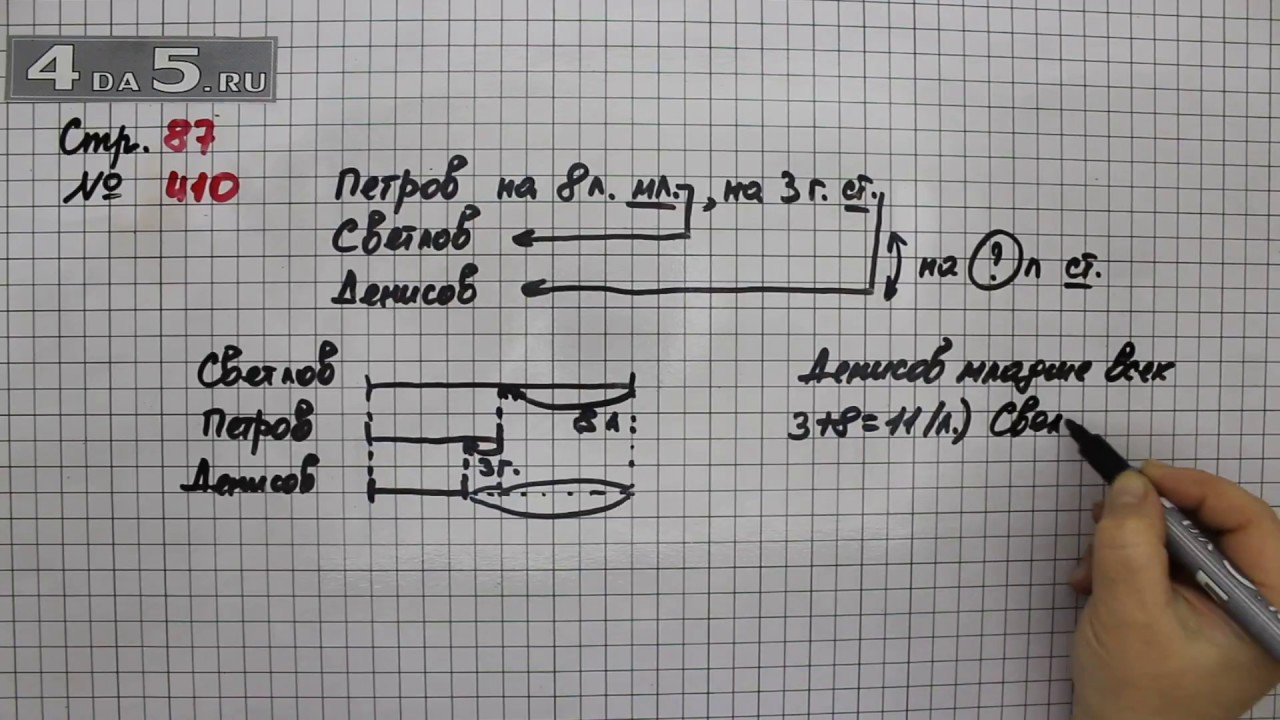 4 DA 5.RU
Стр. 87
№ 410
Петров на 8 л. мл., на 3 г. ст.
Светлов
Денисов
на ? л ст.
Светлов
8 л.
Петров
3 г.
Денисов
Денисов младше всех
3+8=11(л.)